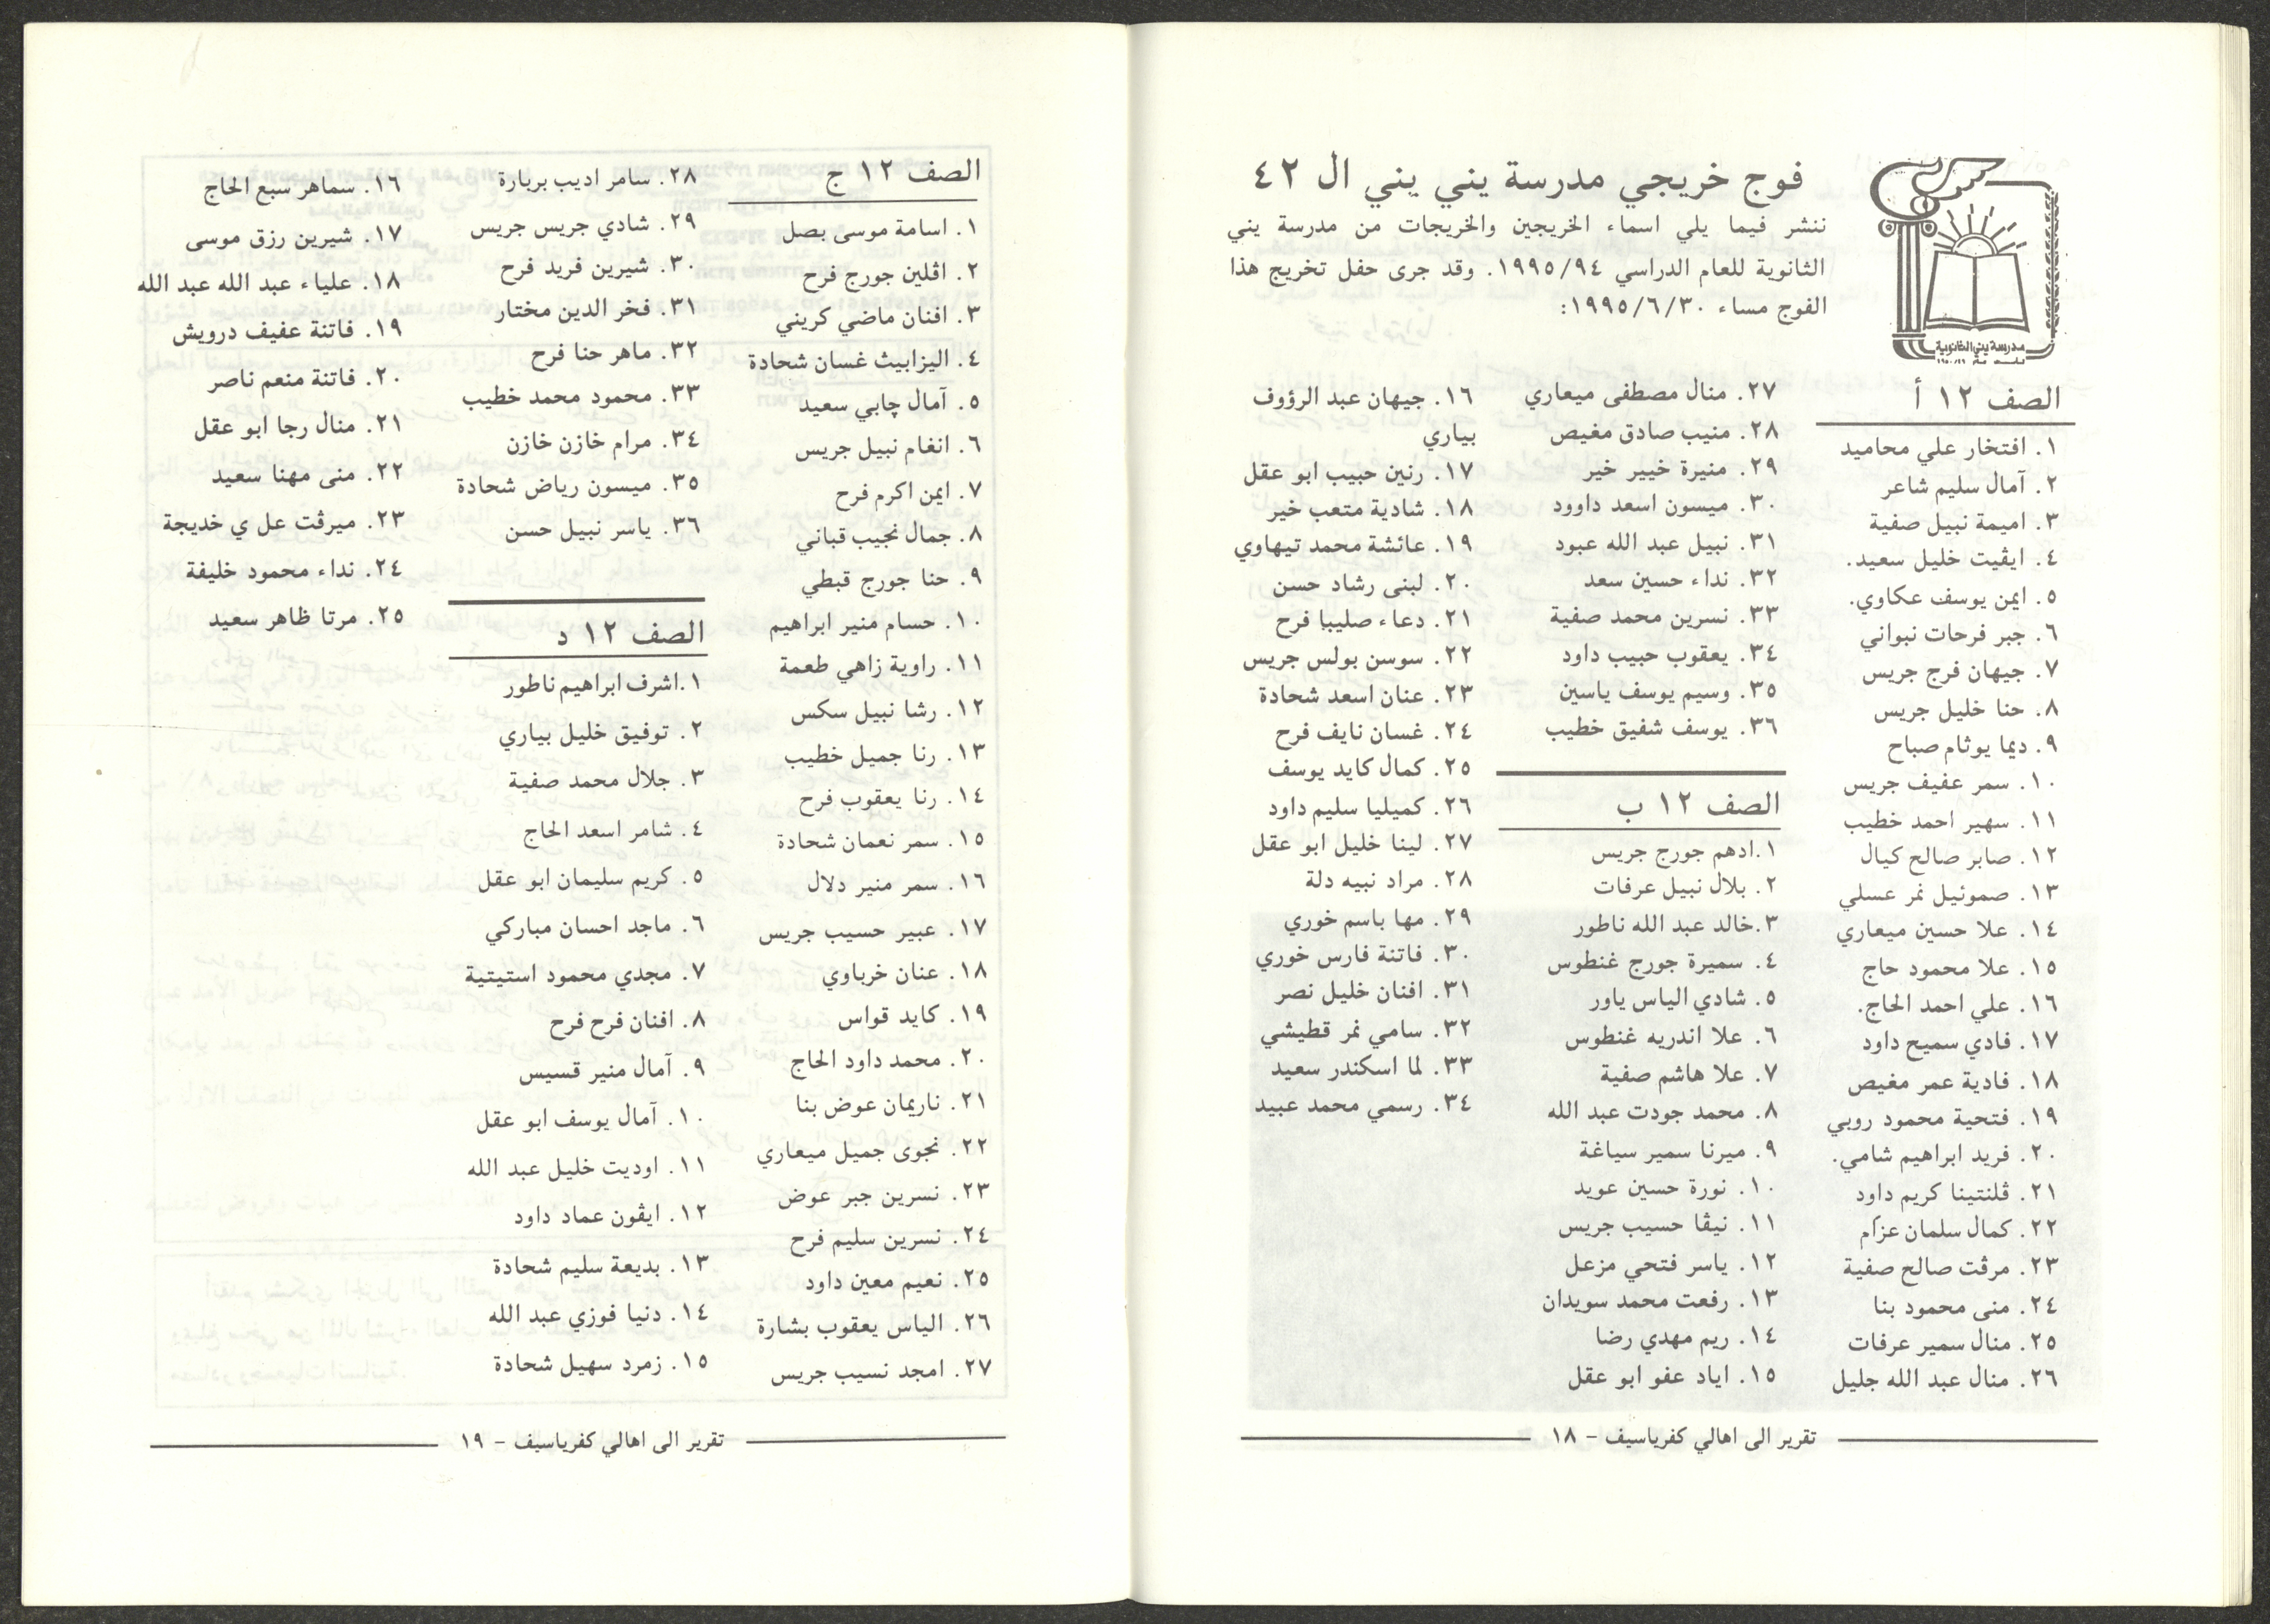 فوج خريجي مدرسة يني يني ال ٤٢
ننشر فيما يلي اسماء الخريجين والخريجات من مدرسة يني
الثانوية للعام الدراسي ١٩٩٥/٩٤. وقد جرى حفل تخريج هذا
الفوج مساء ١٩٩٥/٦/٣٠:
مدرسة يني الثانوية
الصف ١٢ أ
١. افتخار علي محاميد
٢. آمال سليم شاعر
٣. اميمة نبيل صفية
٤. ايڤيت خليل سعيد.
٥. ايمن يوسف عكاوي.
٦. جبر فرحات نبواني
٧. جيهان فرج جريس
٨. حنا خليل جريس
٩. ديما يوثام صباح
١٠. سمر عفيف جريس
١١. سهير احمد خطيب
١٢. صابر صالح كيال
١٣. صموئيل نمر عسلي
١٤. علا حسين ميعاري
١٥. علا محمود حاج
١٦. علي احمد الحاج.
١٧. فادي سميح داود
١٨. فادية عمر مغيص
١٩. فتحية محمود روبي
٢٠. فريد ابراهيم شامي.
٢١. ڤلنتينا كريم داود
٢٢. كمال سلمان عزام
٢٣. مرڤت صالح صفية
٢٤. منى محمود بنا
٢٥. منال سمير عرفات
٢٦. منال عبد الله جليل
٢٧. منال مصطفى ميعاري
٢٨. منيب صادق مغيص
٢٩. منيرة خيير خير
٣٠. ميسون اسعد داوود
٣١. نبيل عبد الله عبود
٣٢. نداء حسين سعد
٣٣. نسرين محمد صفية
٣٤. يعقوب حبيب داود
٣٥. وسيم يوسف ياسين
٣٦. يوسف شفيق خطيب
الصف ١٢ ب
١.ادهم جورج جريس
٢. بلال نبيل عرفات
٣.خالد عبد الله ناطور
٤. سميرة جورج غنطوس
٥. شادي الياس ياور
٦. علا اندريه غنطوس
٧. علا هاشم صفية
٨. محمد جودت عبد الله
٩. ميرنا سمير سياغة
١٠. نورة حسين عويد
١١. نيڤا حسيب جريس
١٢. ياسر فتحي مزعل
١٣. رفعت محمد سويدان
١٤. ريم مهدي رضا
١٥. اياد عفو ابو عقل
١٦. جيهان عبد الرؤوف
بياري
١٧. رنين حبيب ابو عقل
١٨. شادية متعب خير
١٩. عائشة محمد تيهاوي
٢٠. لبنى رشاد حسن
٢١. دعاء صليبا فرح
٢٢. سوسن بولس جريس
٢٣. عنان اسعد شحادة
٢٤. غسان نايف فرح
٢٥. كمال كايد يوسف
٢٦. كميليا سليم داود
٢٧. لينا خليل ابو عقل
٢٨. مراد نبيه دلة
٢٩. مها باسم خوري
٣٠. فاتنة فارس خوري
٣١. افنان خليل نصر
٣٢. سامي نمر قطيشي
٣٣. لما اسكندر سعيد
٣٤. رسمي محمد عبيد
تقرير الى اهالي كفرياسيف - ١٨
الصف ١٢ ج
١. اسامة موسى بصل
٢. اڤلين جورج فرح
٣. افنان ماضي كريني
٤. اليزابيث غسان شحادة
٥. آمال چابي سعيد
٦. انغام نبيل جريس
٧. ايمن اكرم فرح
٨. جمال نجيب قباني
٩. حنا جورج قبطي
١٠. حسام منير ابراهيم
١١. راوية زاهي طعمة
١٢. رشا نبيل سكس
١٣. رنا جميل خطيب
١٤. رنا يعقوب فرح
١٥. سمر نعمان شحادة
١٦. سمر منير دلال
١٧. عبير حسيب جريس
١٨. عنان خرباوي
١٩. كايد قواس
٢٠. محمد داود الحاج
٢١. ناريمان عوض بنا
٢٢. نجوى جميل ميعاري
٢٣. نسرين جبر عوض
٢٤. نسرين سليم فرح
٢٥. نعيم معين داود
٢٦. الياس يعقوب بشارة
٢٧. امجد نسيب جريس
٢٨. سامر اديب بربارة
٢٩. شادي جريس جريس
٣٠. شيرين فريد فرح
٣١. فخر الدين مختار
٣٢. ماهر حنا فرح
٣٣. محمود محمد خطيب
٣٤. مرام خازن خازن
٣٥. ميسون رياض شحادة
٣٦. ياسر نبيل حسن
الصف ١٢ د
١.اشرف ابراهيم ناطور
٢. توفيق خليل بياري
٣. جلال محمد صفية
٤. شامر اسعد الحاج
٥. كريم سليمان ابو عقل
٦. ماجد احسان مباركي
٧. مجدي محمود استيتية
٨. افنان فرح فرح
٩. آمال منير قسيس
١٠. آمال يوسف ابو عقل
١١. اوديت خليل عبد الله
١٢. ايڤون عماد داود
١٣. بديعة سليم شحادة
١٤. دنيا فوزي عبد الله
١٥. زمرد سهيل شحادة
١٦. سماهر سبع الحاج
١٧. شيرين رزق موسى
١٨. علياء عبد الله عبد الله
١٩. فاتنة عفيف درويش
٢٠. فاتنة منعم ناصر
٢١. منال رجا ابو عقل
٢٢. منى مهنا سعيد
٢٣. ميرڤت عل ي خديجة
٢٤. نداء محمود خليفة
٢٥. مرتا ظاهر سعيد
تقرير الى اهالي كفرياسيف - ١٩